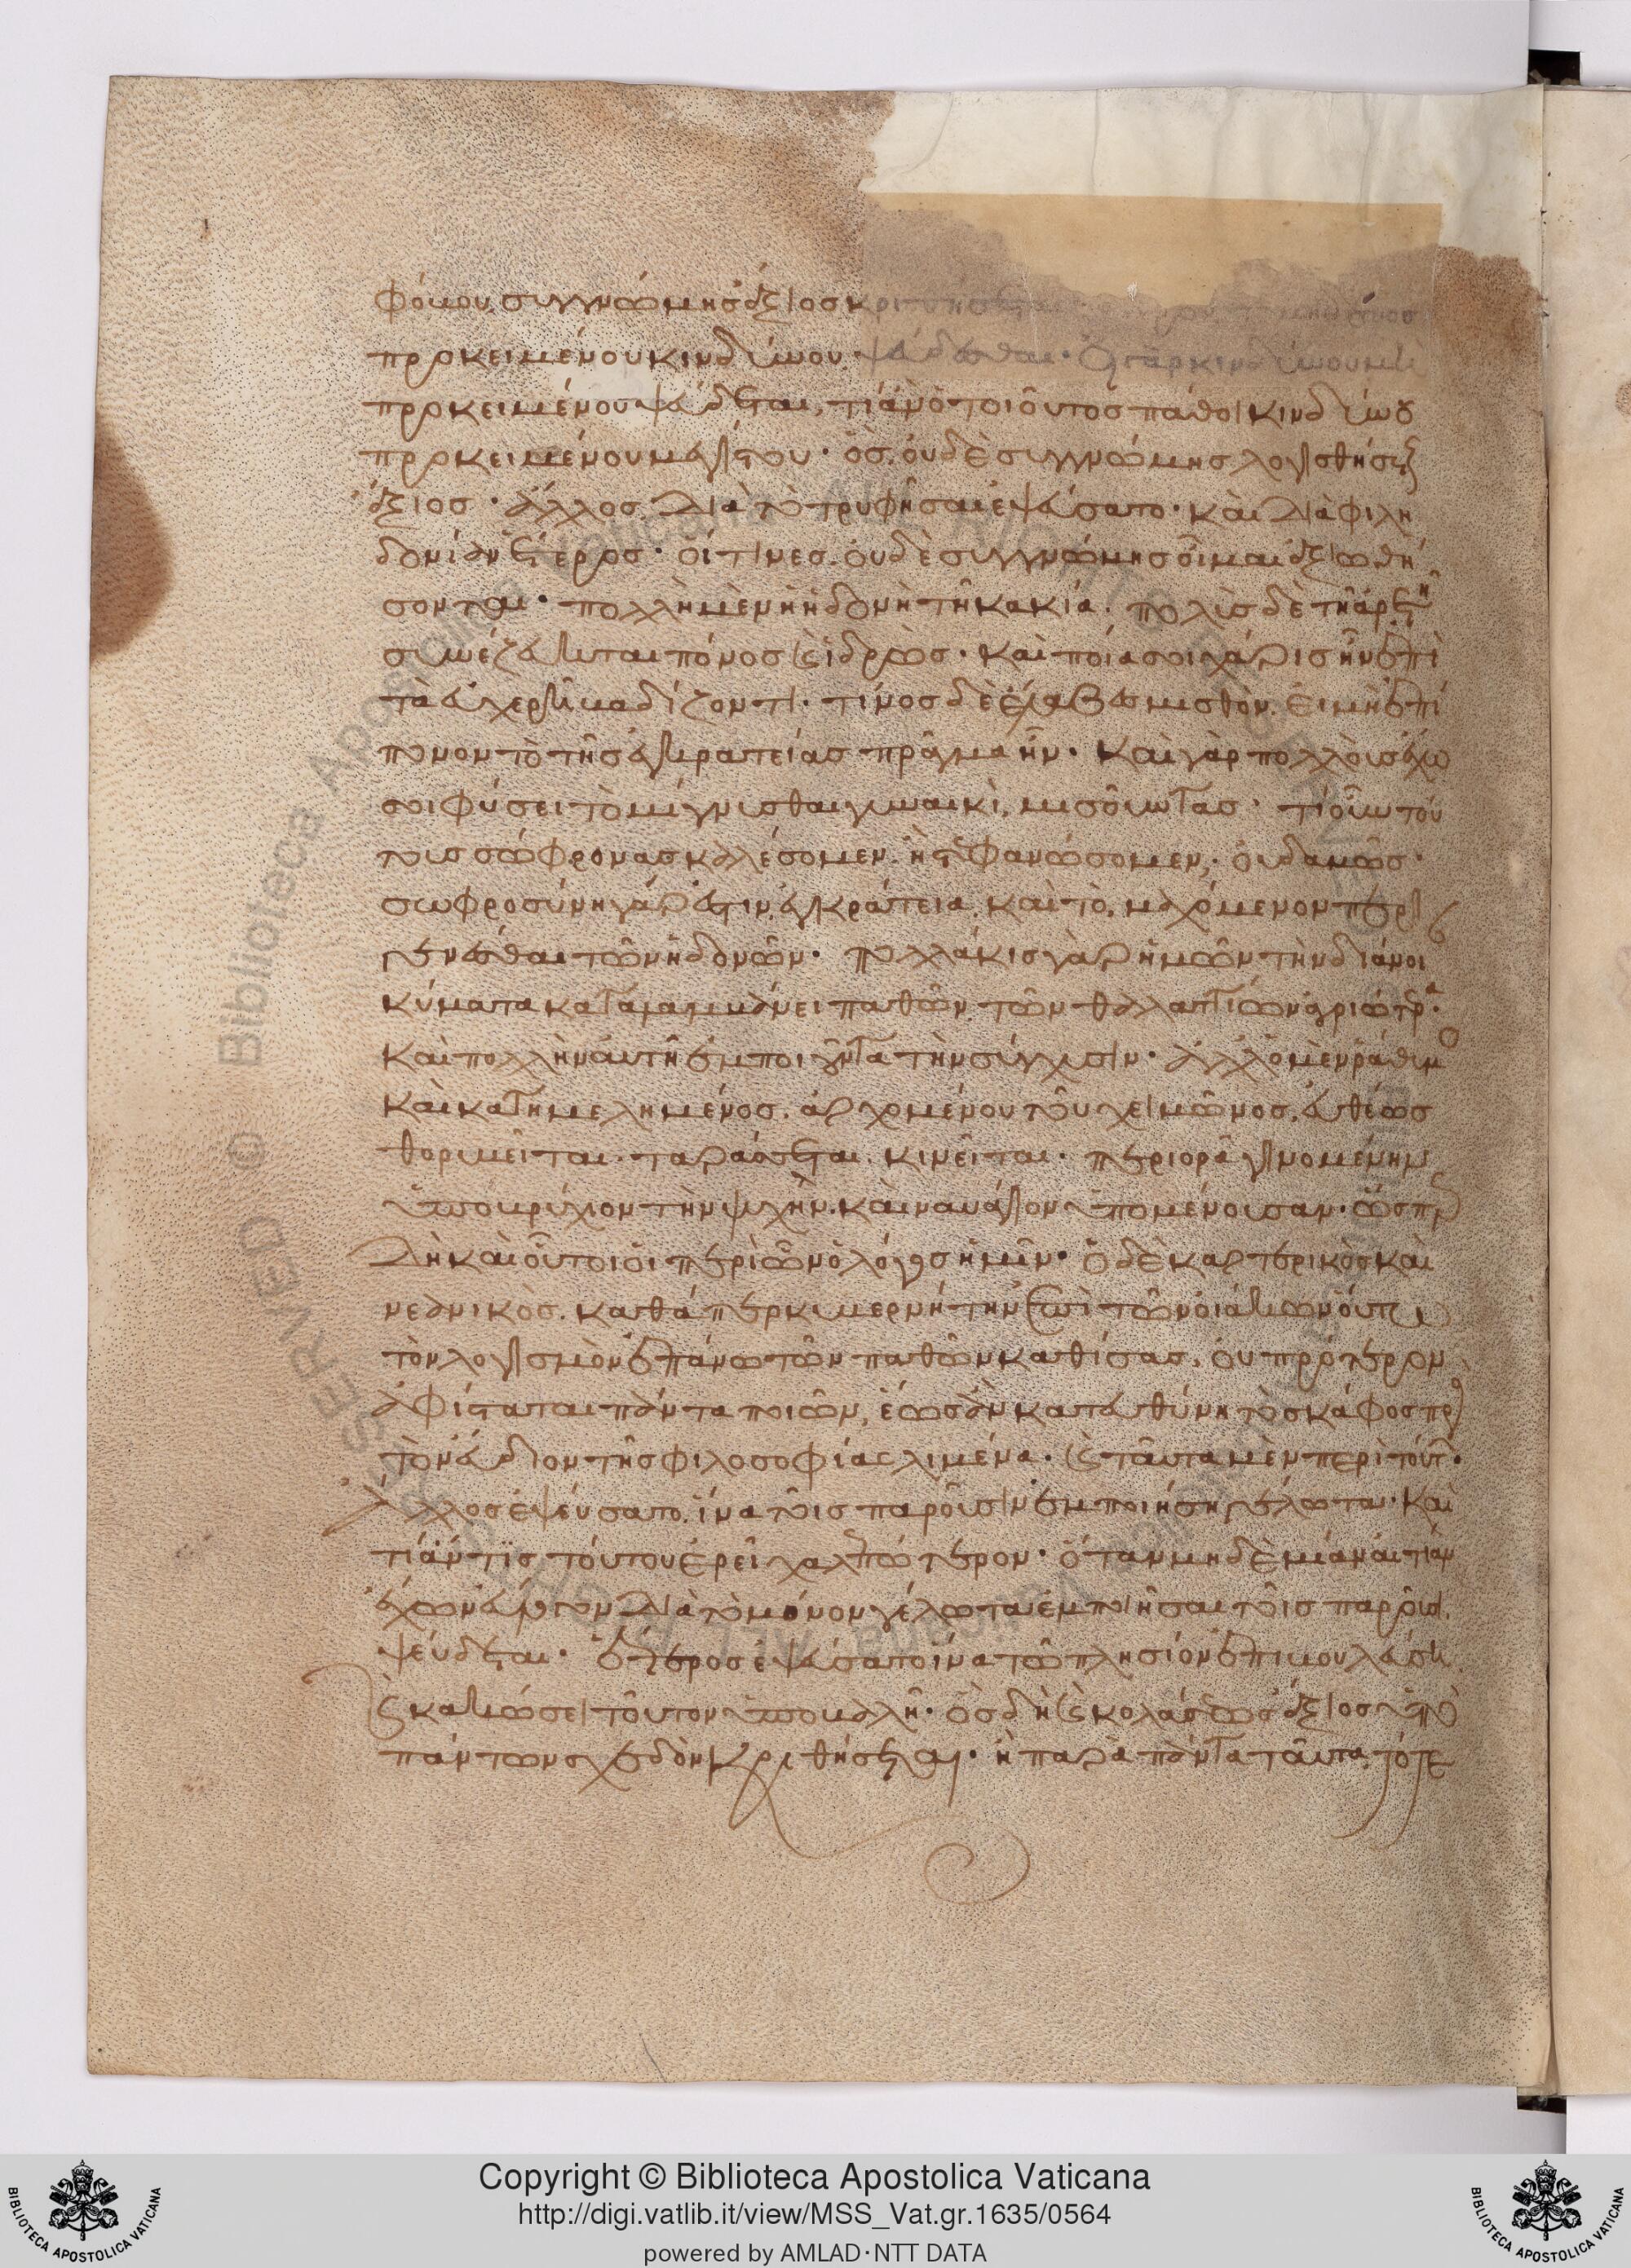 φόμου, συγγνώμης ἄξιος κριτ
προκειμένου κινδύνου ψεύδεσθαι· ὁ γὰρ κινδύνου μὴ
προκειμένου ψεύδεται, τί ἂν ὁ τοιοῦτος πάθοι κινδύνου
προκειμένου μεγίστου· ὃς οὐδὲ συγγνώμης λογισθήσεται
ἄξιος· ἄλλος διὰ τὸ τρυφῆσαι ἐψεύσατο· καὶ διὰ φιλη
δονίαν ἕτερος· οἵτινες οὐδὲ συγγνώμης οἶμαι ἀξιωθή
σονται· πολλὴ μὲν ἡ ἡδονὴ τῆ κακία· πολὺς δὲ τῆ ἀρετῆ
συνέζευκται πόνος καὶ ἱδρώς· καὶ ποία σοι χάρις ἦν ἐπὶ
τὰ εὐχερῆ βαδίζοντι· τίνος δὲ ἔλαβες μισθόν· εἰ μὴ ἐπί
πονον τὸ τῆς ἐγκρατείας πρᾶγμα ἦν· καὶ γὰρ πολλοὺς ἔχω
σοι φύσει τὸ μίγνυσθαι γυναικὶ, μισοῦντας· τί οὖν τού
τους σώφρονας καλέσομεν· ἢ στεφανώσομεν; οὐδαμῶς·
σωφροσύνη γάρ ἐστιν ἐγκράτεια καὶ τὸ, μαχόμενον περι
γενέσθαι τῶν ἡδονῶν· πολλάκις γὰρ ἡμῶν τὴν διάνοι
κύματα καταλαμβάνει παθῶν τῶν θαλαττίων ἀγριώτερα·
καὶ πολλὴν αὐτῆ ἐμποιοῦντα τὴν σύγχυσιν· ἀλλ' ὁ μὲν ράθυμο
καὶ κατημελημένος, ἀρχομένου τοῦ χειμῶνος, εὐθέως
θορυβεῖται· ταράσσεται· κινεῖται· περιορᾶ γινομένην
ὑποβρύχιον τὴν ψυχὴν· καὶ ναυάγιον ὑπομένουσαν· ὥσπερ
δὴ καὶ οὗτοι οἱ περὶ ὧν ὁ λόγος ἡμῖν· ὁ δὲ καρτερικὸς καὶ
νεανικὸς· καθάπερ κυβερνήτην ἐπὶ τῶν οἰάκων οὕτω
τὸν λογισμὸν ἐπάνω τῶν παθῶν καθίσας, οὐ πρότερον
ἀφίσταται πάντα ποιῶν, ἕως ἂν κατευθύνη τὸ σκάφος πρὸς
τὸν εὔδιον τῆς φιλοσοφίας λιμένα· καὶ ταῦτα μὲν περὶ τούτ·
Ἄλλος ἐψεύσατο· ἵνα τοῖς παροῦσιν ἐμποιήση γέλωτα· καὶ
τί ἄν τις τούτου ἐρεῖ χαλεπώτερον· ὅταν μηδεμίαν αἰτίαν
ἔχων εὔλογον διὰ τὸ μόνον γέλωτα ἐμποιῆσαι τοῖς παροῦσι,
ψεύδεται· ἕτερος ἐψεύσατο ἵνα τῶ πλησίον ἐπιβουλεύση
καὶ κακώσει τοῦτον ὑποβαλῆ· ὃς δὴ καὶ κολάσεως ἄξιος ὑπὸ
πάντων σχεδὸν κριθήσεται· ἢ παρὰ πάντα ταῦτα, τό τε
Copyright © Biblioteca Apostolica Vaticana
http://digi.vatlib.it/view/MSS_Vat.gr.1635/0564
powered by AMLAD·NTT DATA